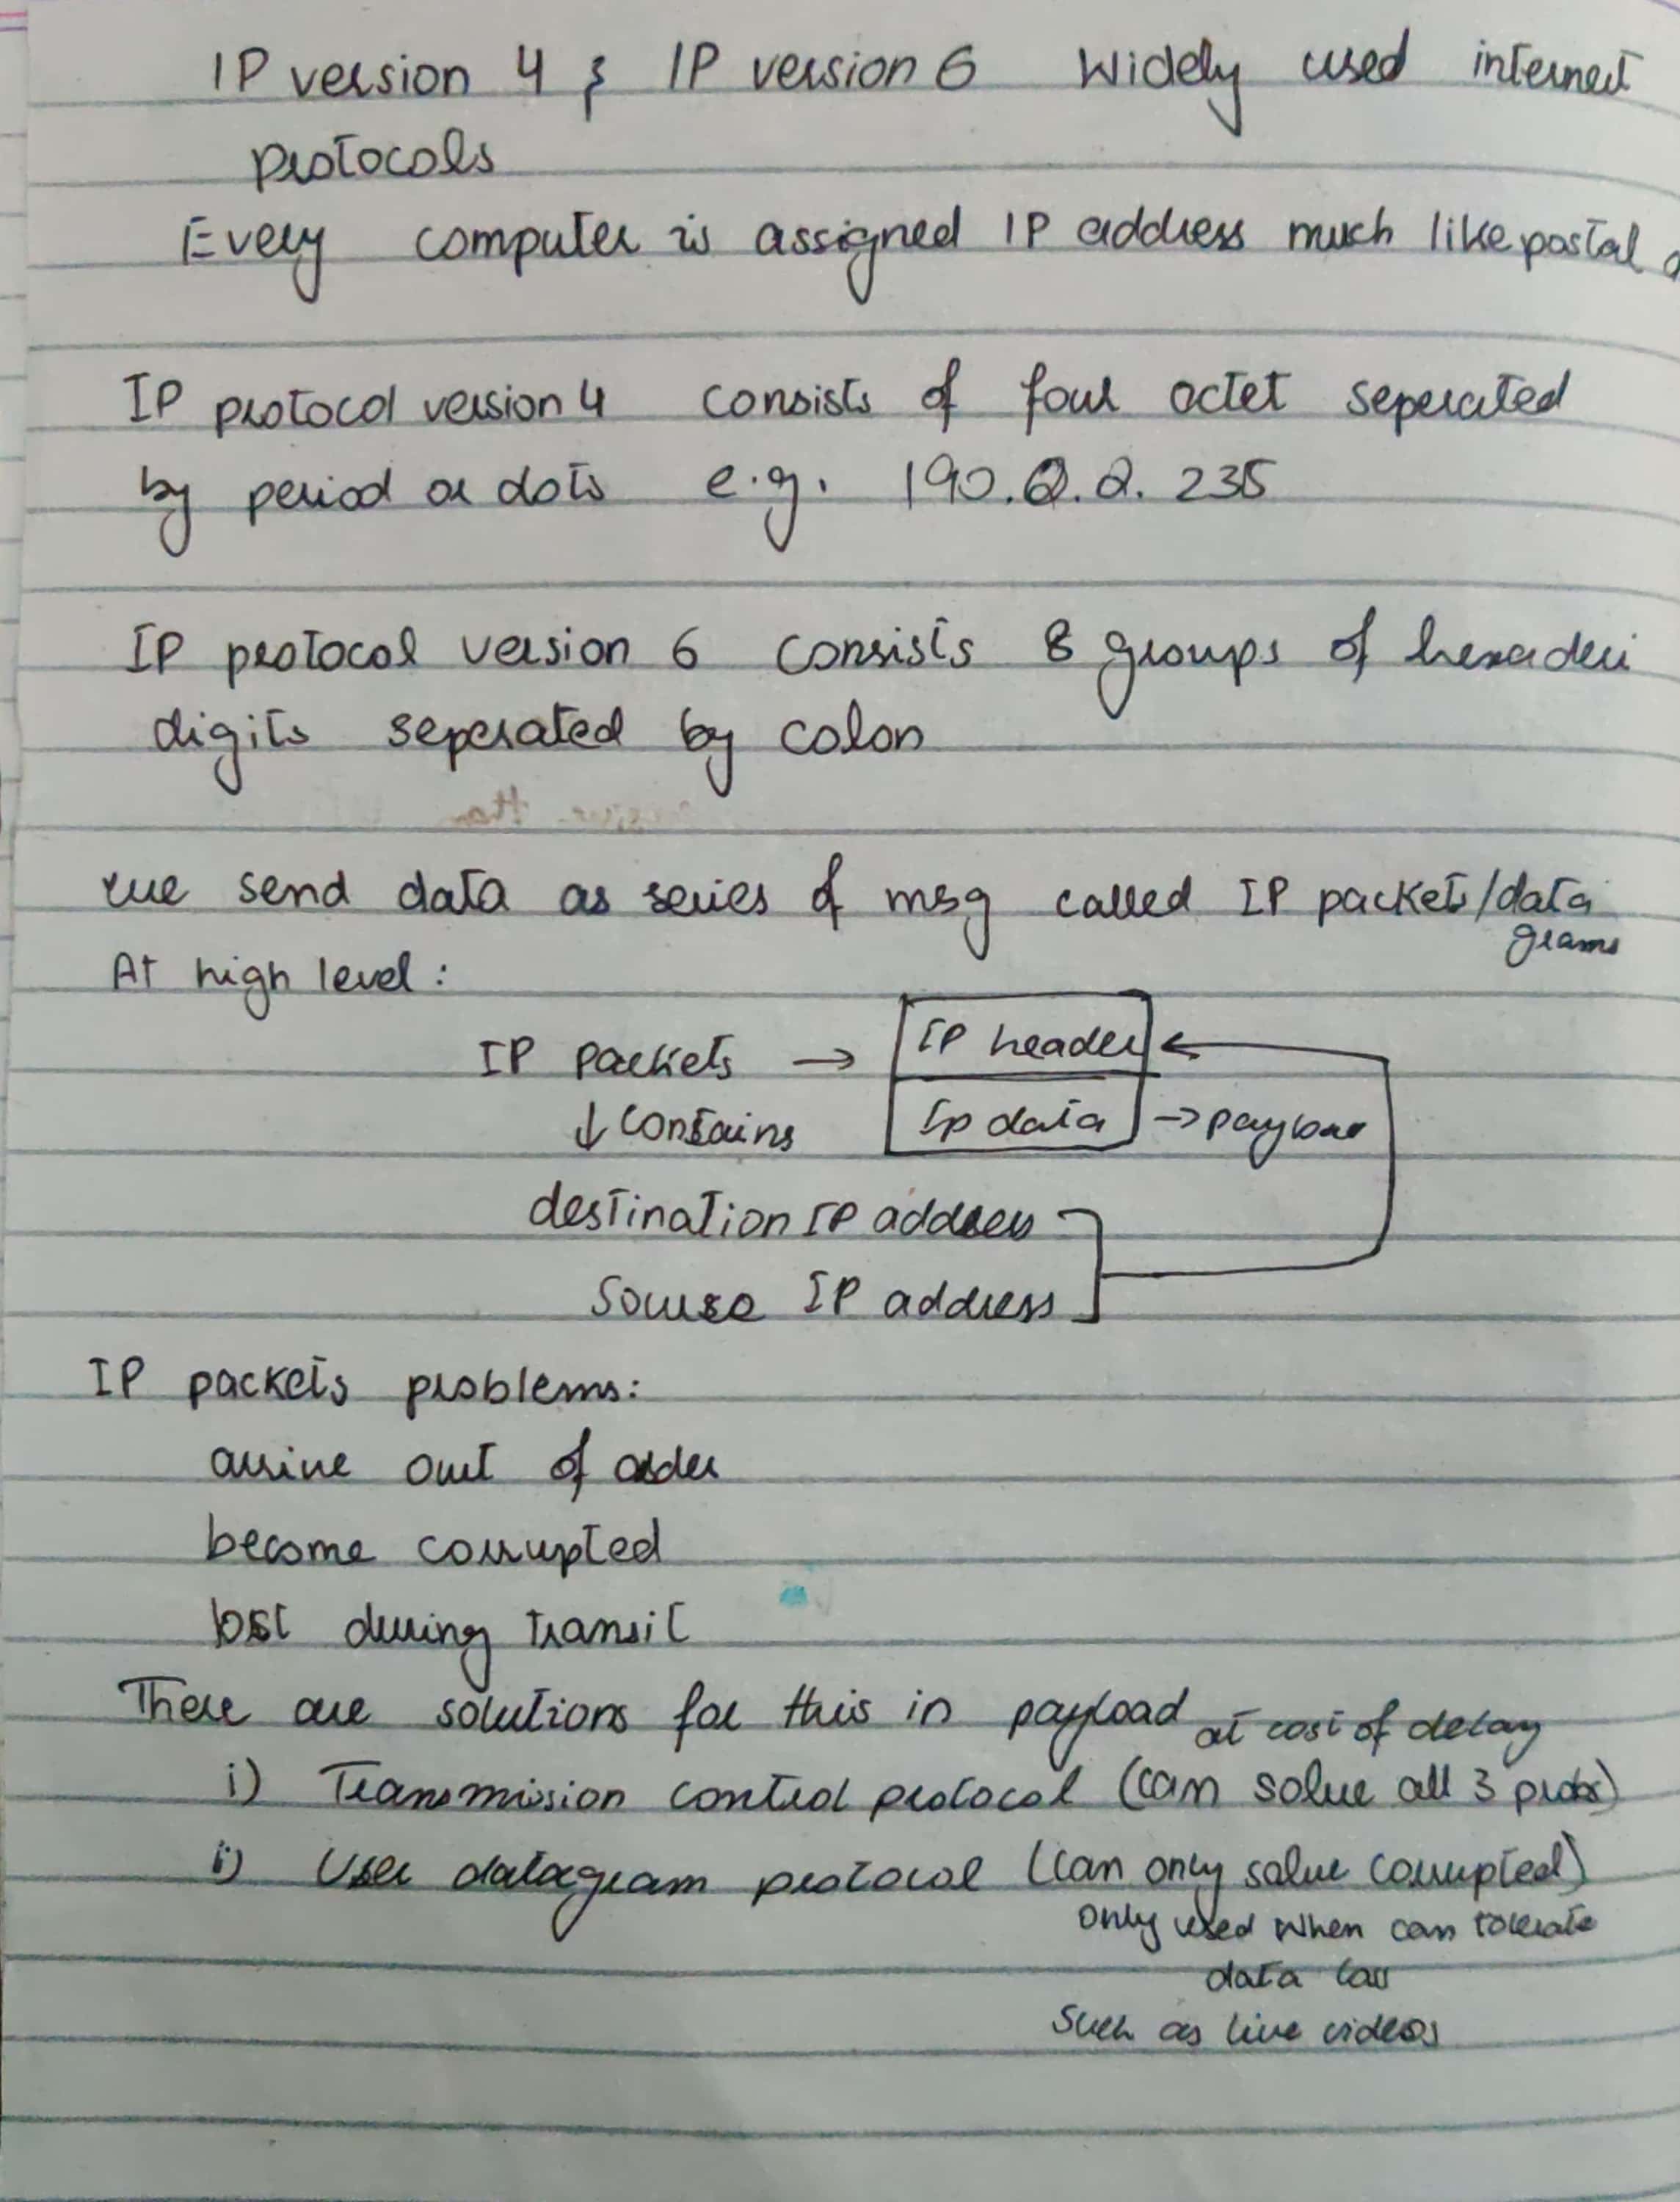 IP version 4 & IP version 6 Widely used internet
protocols
Every computer is assigned IP address much like postal
IP protocol version 4 consists of four octet seperated
by period or dots e.g. 190.0.2.235
IP protocol version 6 consists 8 groups of hexadeci
digits seperated by colon
we send data as series of msg called IP packets/data
grams
At high level:
IP packets → IP header
↓ contains Ip data → payload
destination IP address
Source IP address
IP packets problems:
arrive out of order
become corrupted
lost during transit
There are solutions for this in payload at cost of delay
i) Transmission control protocol (can solve all 3 probs)
ii) User datagram protocol (can only solve corrupted)
only used when can tolerate
data loss
Such as live videos